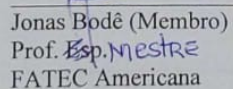 Jonas Bodê (Membro)
Prof. Esp. MESTRE
FATEC Americana